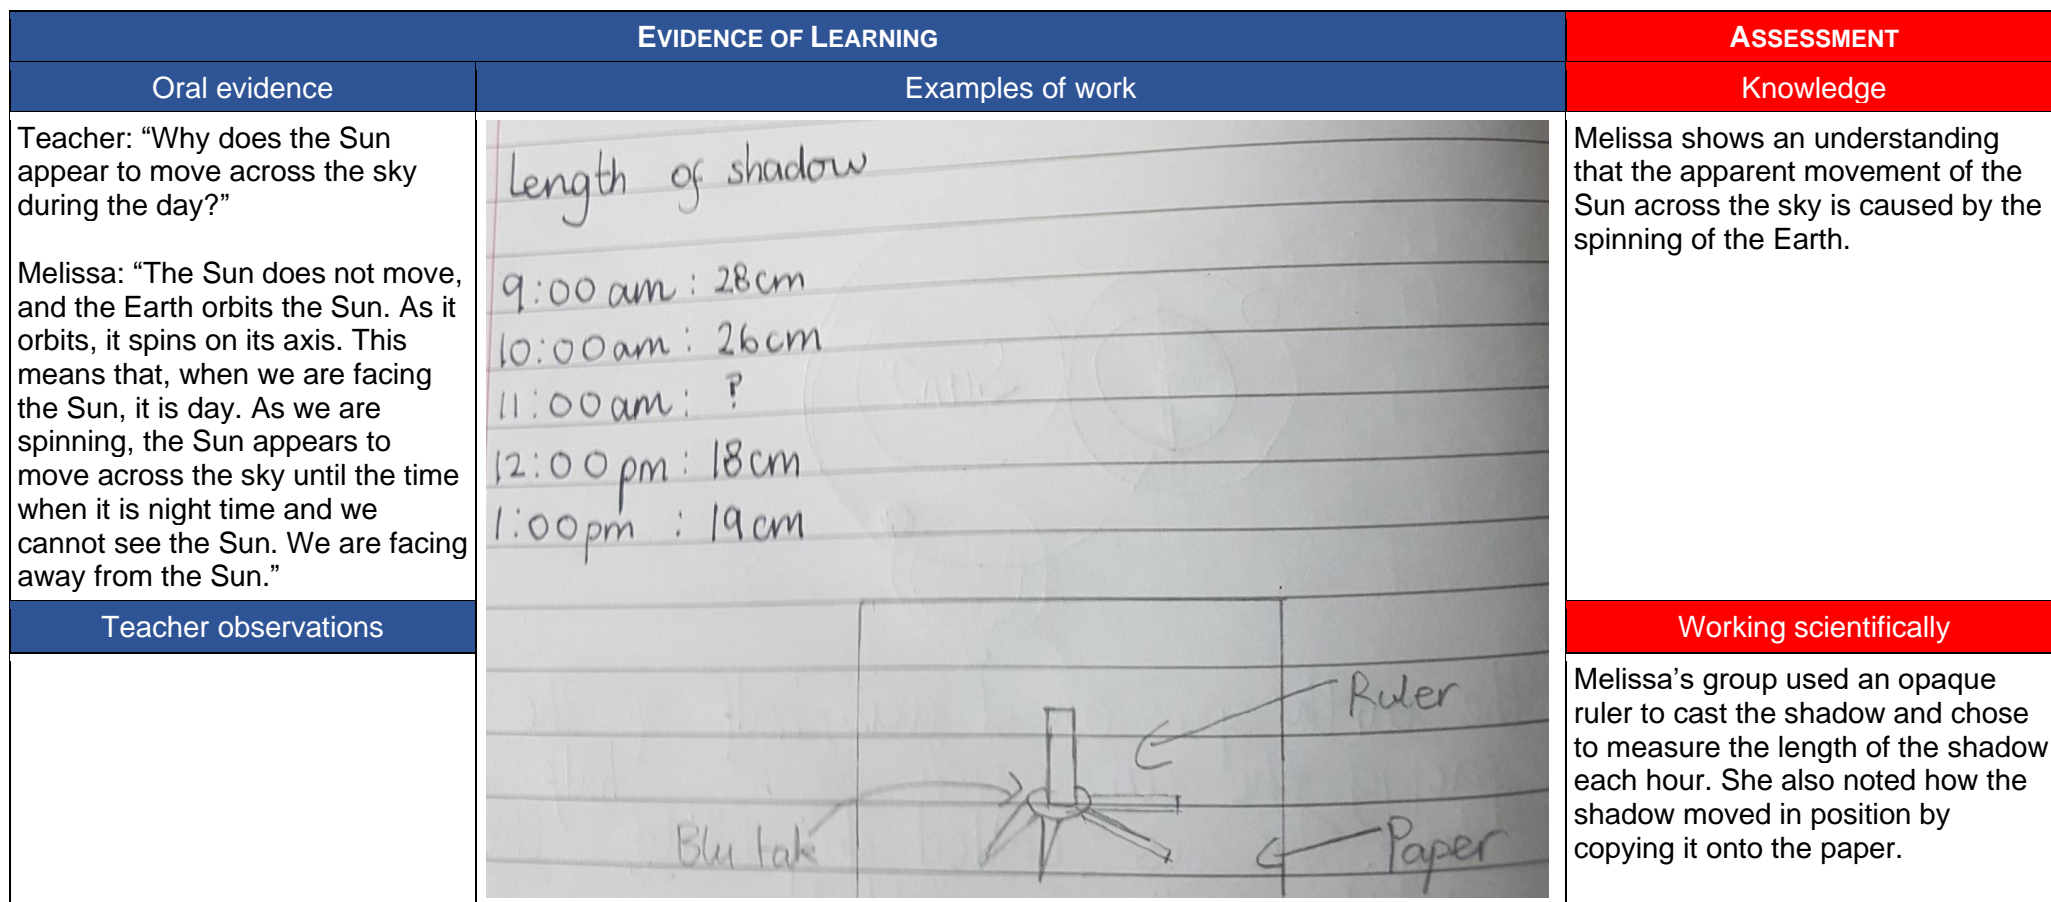 EVIDENCE OF LEARNING
ASSESSMENT
Oral evidence
Examples of work
Knowledge
Teacher: “Why does the Sun
appear to move across the sky
during the day?”
Melissa: “The Sun does not move,
and the Earth orbits the Sun. As it
orbits, it spins on its axis. This
means that, when we are facing
the Sun, it is day. As we are
spinning, the Sun appears to
move across the sky until the time
when it is night time and we
cannot see the Sun. We are facing
away from the Sun.”
Teacher observations
Length of shadow
9:00 am : 28cm
10:00am : 26cm
11:00am : ?
12:00pm : 18cm
1:00pm : 19cm
Ruler
Blu tak
Paper
Melissa shows an understanding
that the apparent movement of the
Sun across the sky is caused by the
spinning of the Earth.
Working scientifically
Melissa’s group used an opaque
ruler to cast the shadow and chose
to measure the length of the shadow
each hour. She also noted how the
shadow moved in position by
copying it onto the paper.